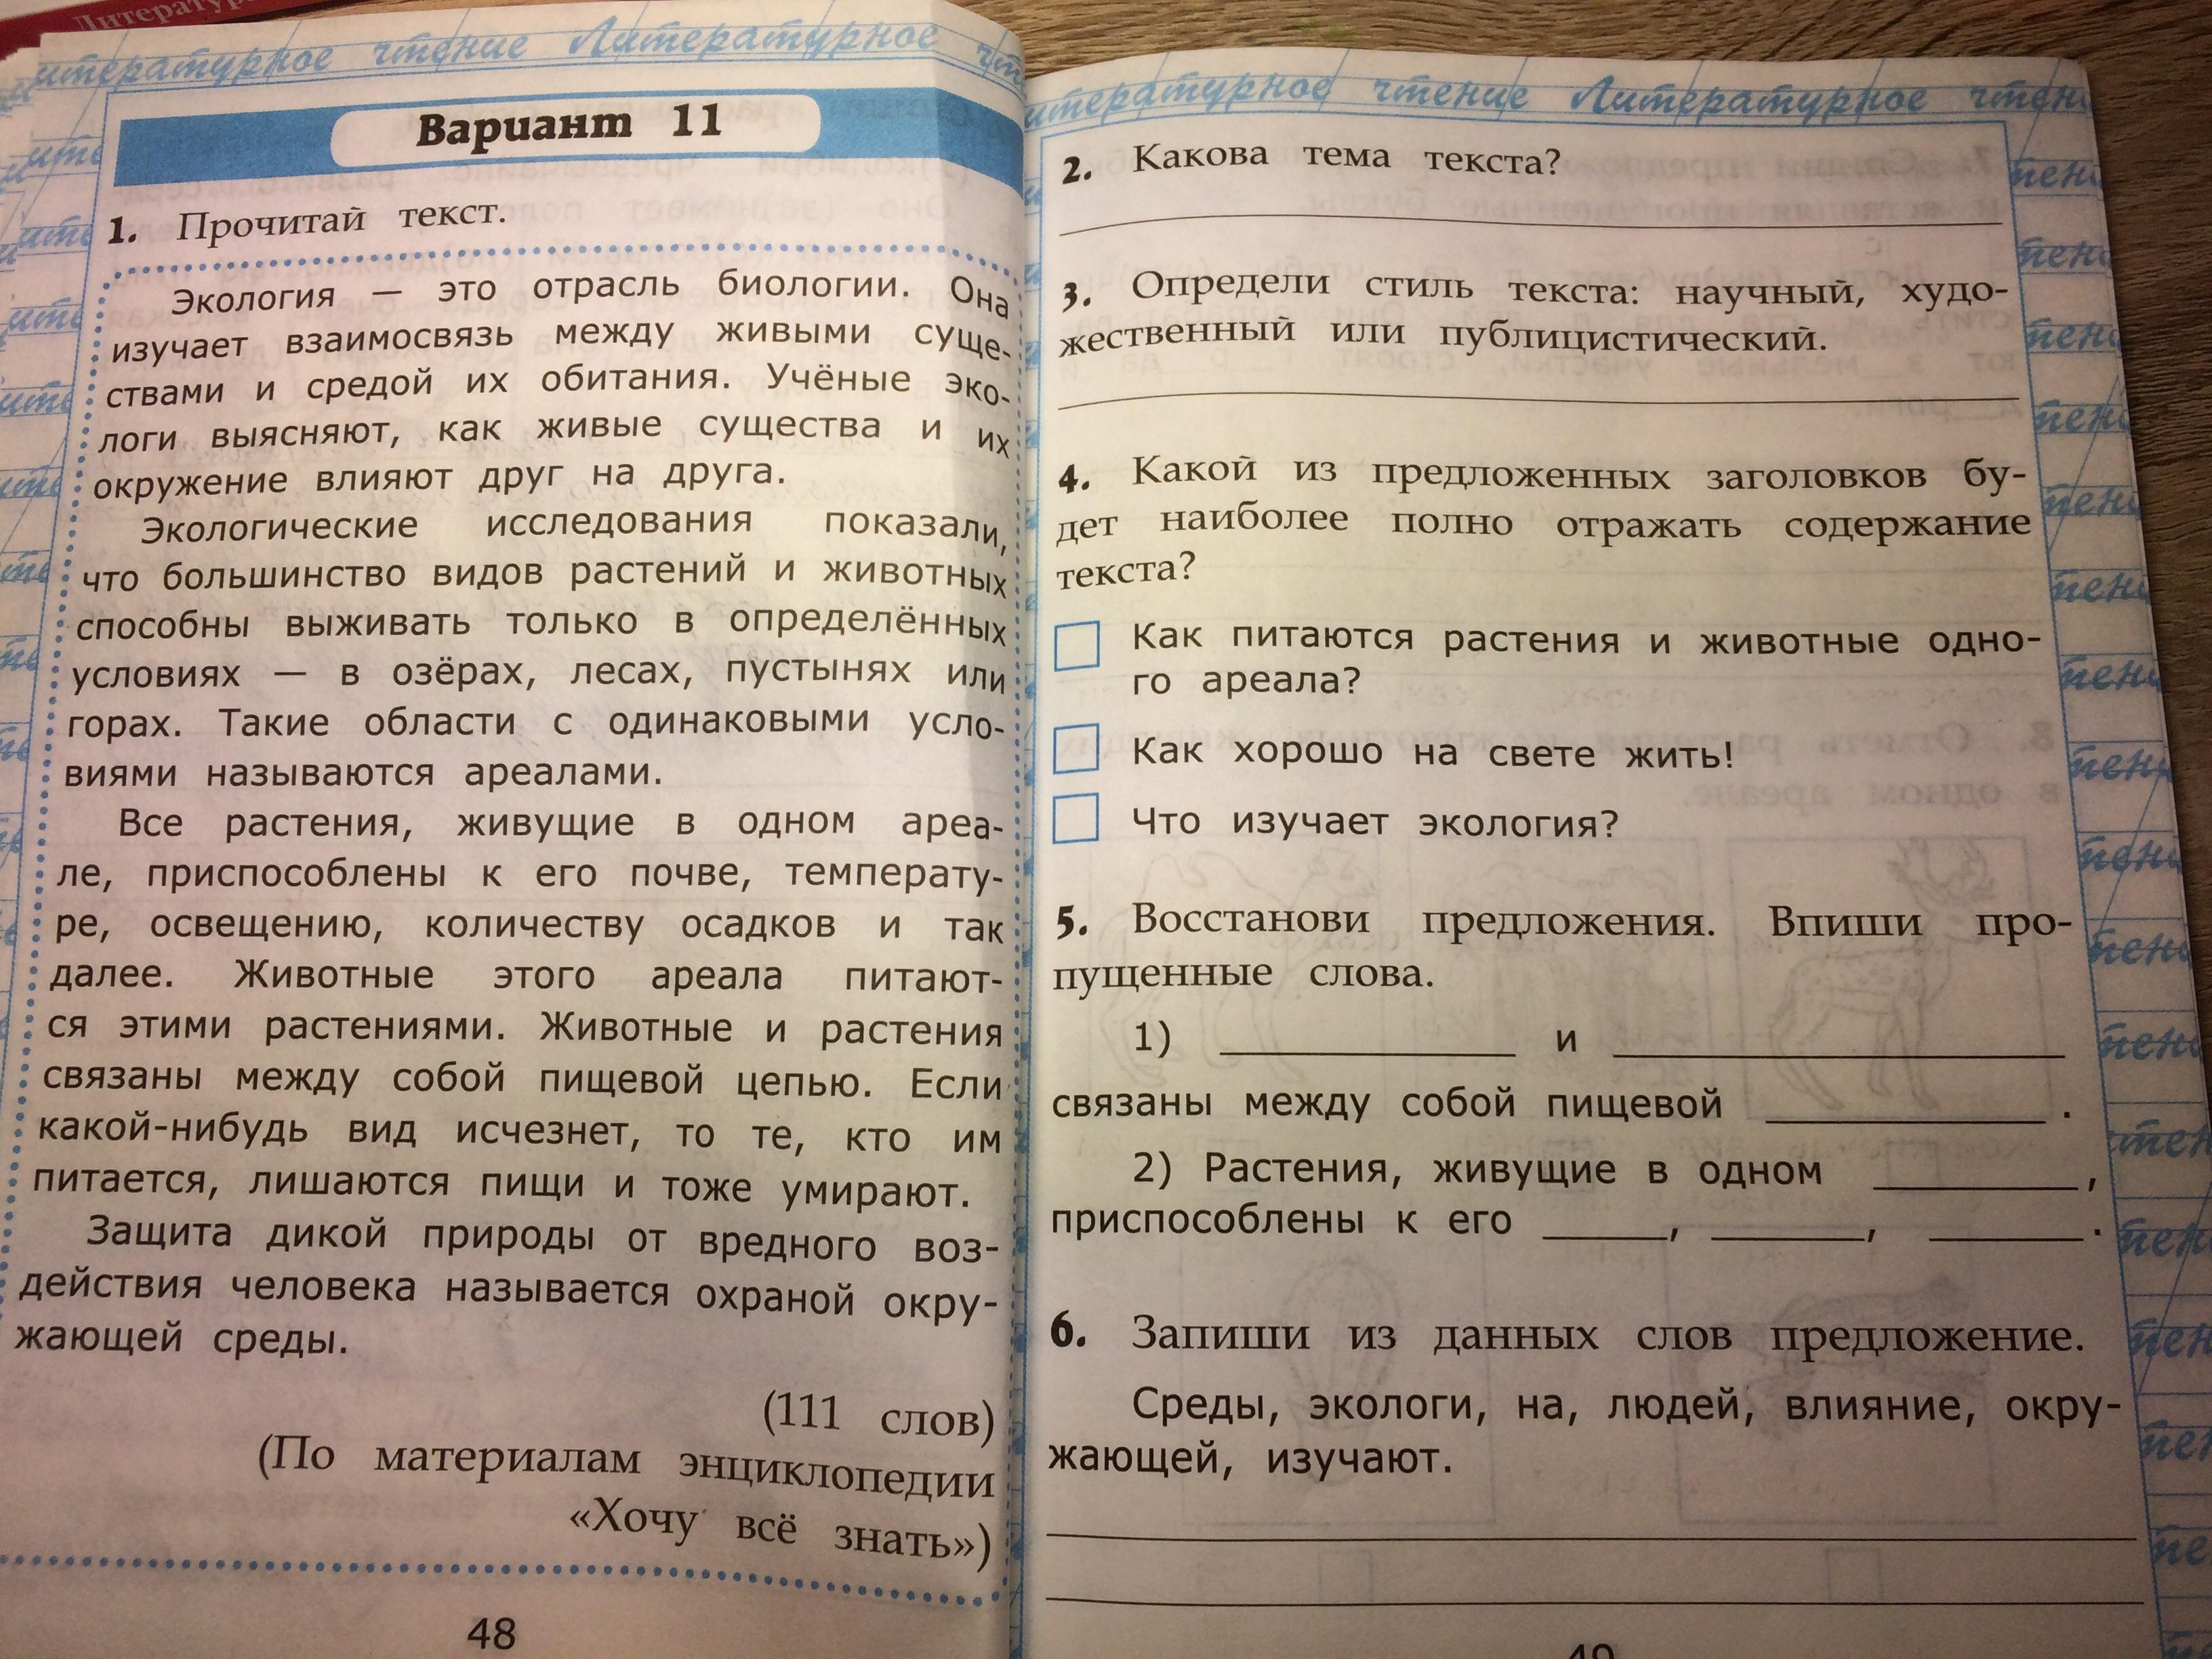 Литература
литературное чтение Литературное чт
Вариант 11
1. Прочитай текст.
Экология — это отрасль биологии. Она
изучает взаимосвязь между живыми суще-
ствами и средой их обитания. Учёные эко-
логи выясняют, как живые существа и их
окружение влияют друг на друга.
Экологические исследования показали,
что большинство видов растений и животных
способны выживать только в определённых
условиях — в озёрах, лесах, пустынях или
горах. Такие области с одинаковыми усло-
виями называются ареалами.
Все растения, живущие в одном ареа-
ле, приспособлены к его почве, температу-
ре, освещению, количеству осадков и так
далее. Животные этого ареала питают-
ся этими растениями. Животные и растения
связаны между собой пищевой цепью. Если
какой-нибудь вид исчезнет, то те, кто им
питается, лишаются пищи и тоже умирают.
Защита дикой природы от вредного воз-
действия человека называется охраной окру-
жающей среды.
(111 слов)
(По материалам энциклопедии
«Хочу всё знать»)
48
итературное чтение Литературное чтен
2. Какова тема текста?
3. Определи стиль текста: научный, худо-
жественный или публицистический.
4. Какой из предложенных заголовков бу-
дет наиболее полно отражать содержание
текста?
Как питаются растения и животные одно-
го ареала?
Как хорошо на свете жить!
Что изучает экология?
5. Восстанови предложения. Впиши про-
пущенные слова.
1) ____________ и ____________
связаны между собой пищевой ____________.
2) Растения, живущие в одном ________,
приспособлены к его _____, ______, ______.
6. Запиши из данных слов предложение.
Среды, экологи, на, людей, влияние, окру-
жающей, изучают.
49